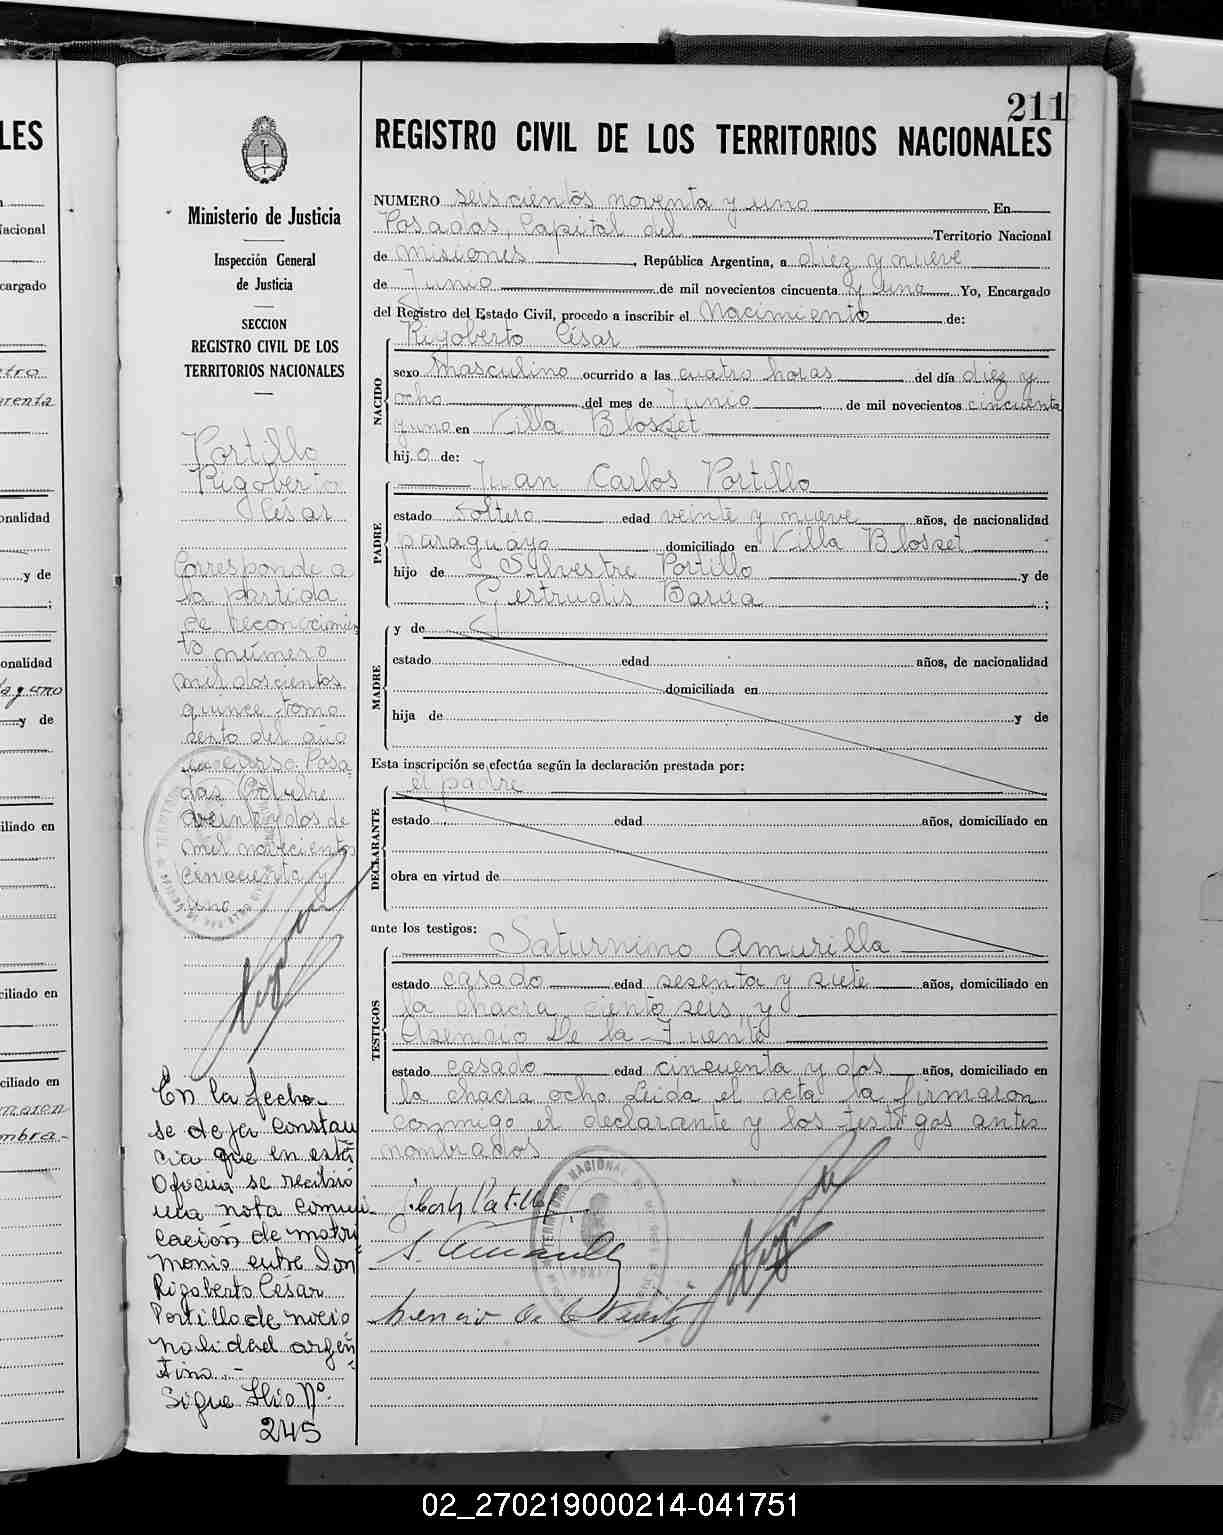 211
REGISTRO CIVIL DE LOS TERRITORIOS NACIONALES
Ministerio de Justicia
Inspección General
de Justicia
SECCION
REGISTRO CIVIL DE LOS
TERRITORIOS NACIONALES
Portillo
Rigoberto
César
Corresponde a
la partida
de reconocimien
to número
mil doscientos
quince tomo
sexto del año
en curso. Posa
das Octubre
veinte y dos de
mil novecientos
cincuenta y
uno
En la fecha
se deja constan
cia que en esta
Oficina se recibió
una nota comuni
cación de matri
monio entre Don
Rigoberto César
Portillo de nacio
nalidad argen
tina.-
Sigue folio Nº
245
NUMERO seiscientos noventa y uno En
Posadas, Capital del Territorio Nacional
de Misiones, República Argentina, a diez y nueve
de Junio de mil novecientos cincuenta y uno Yo, Encargado
del Registro del Estado Civil, procedo a inscribir el Nacimiento de:
NACIDO
Rigoberto César
sexo Masculino ocurrido a las cuatro horas del día diez y
ocho del mes de Junio de mil novecientos cincuenta
y uno en Villa Blosset
hijo de:
PADRE
Juan Carlos Portillo
estado soltero edad veinte y nueve años, de nacionalidad
paraguayo domiciliado en Villa Blosset
hijo de Sylvestre Portillo y de
Gertrudis Barúa ;
MADRE
y de
estado edad años, de nacionalidad
domiciliada en
hija de y de
Esta inscripción se efectúa según la declaración prestada por:
DECLARANTE
el padre
estado edad años, domiciliado en
obra en virtud de
ante los testigos:
TESTIGOS
Saturnino Amarilla
estado casado edad sesenta y siete años, domiciliado en
la chacra ciento seis, y
Asencio De la Fuente
estado casado edad cincuenta y dos años, domiciliado en
la chacra ocho Leida el acta la firmaron
conmigo el declarante y los testigos antes
nombrados
S. Amarilla
Asencio De la Fuente
LES
Nacional
cargado
onalidad
y de
;
onalidad
y de
iliado en
ciliado en
ciliado en
02_270219000214-041751